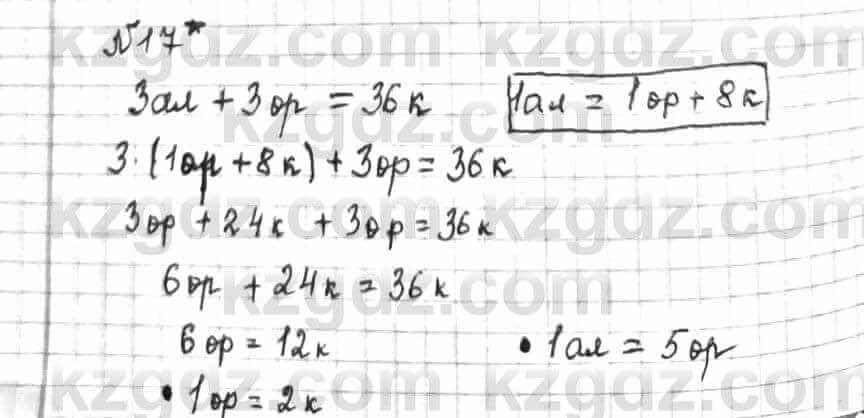 N17*
3ал + 3ор = 36к
1ал = 1ор + 8к
3·(1ор + 8к) + 3ор = 36к
3ор + 24к + 3ор = 36к
6ор + 24к = 36к
6ор = 12к
• 1ал = 5ор
• 1ор = 2к
kzgdz.com kzgdz.com
kzgdz.com
kzgdz.com kzgdz.com
kzgdz.com
kzgdz.com kzgdz.com